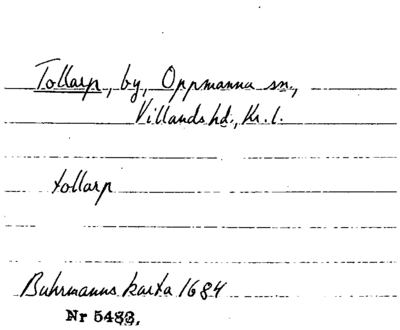 Tollarp, by, Oppmanna sn.,
Villands hd., Kr. l.
tollarp
Buhrmanns karta 1684
Nr 5483.